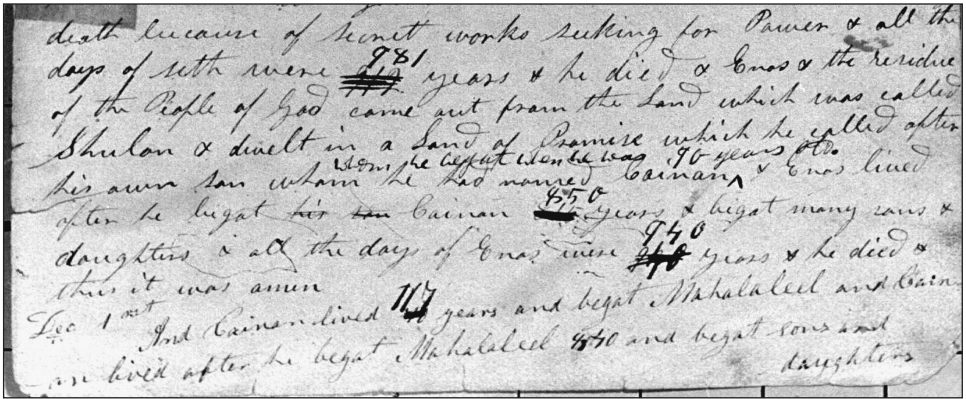 death because of secret works seeking for Power & all the
981
days of seth were 912 years & he died & Enos & the residue
of the People of God came out from the Land which was called
Shulon & dwelt in a Land of Promise which he called after
whom he begat when he was 90 years old.
his own son whom he had named Cainan ^ & Enos lived
850
after he begat his son Cainan years & begat many sons &
940
daughters & all the days of Enos were years & he died &
thus it was amen
117
Dec 1st And Cainan lived years and begat Mahalaleel and Cain-
an lived after he begat Mahalaleel 840 and begat sons and
daughters